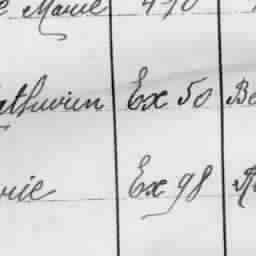 Marie 470
athurin Ex 50 Be
rie Ex 98